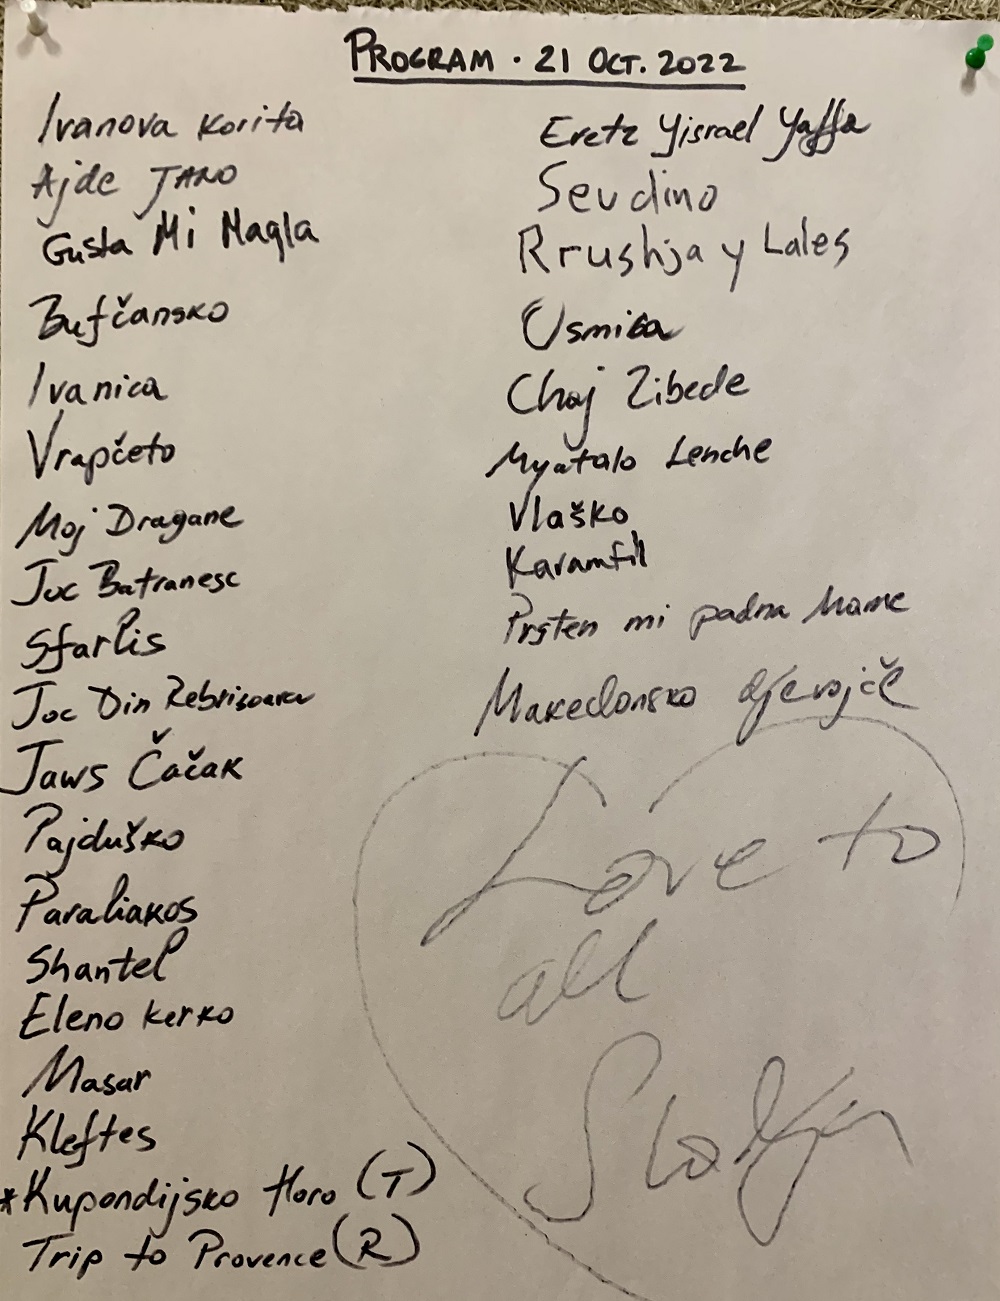 PROGRAM · 21 OCT. 2022
Ivanova Korita
Ajde JANO
Gusta Mi Magla
Bufčansko
Ivanica
Vrapčeto
Moj Dragane
Joc Batranesc
Sfarlis
Joc Din
Jaws Čačak
Pajduško
Paraliakos
Shantel
Eleno kerko
Masar
Kleftes
*Kupondijsko Horo (T)
Trip to Provence (R)
Eretz Yisrael Yaffa
Sevdino
Rrushja y Lales
Osmica
Choj Zibede
Myatalo Lenche
Vlaško
Karamfil
Prsten mi padna Mome
Makedonsko djevojče
Love to
all